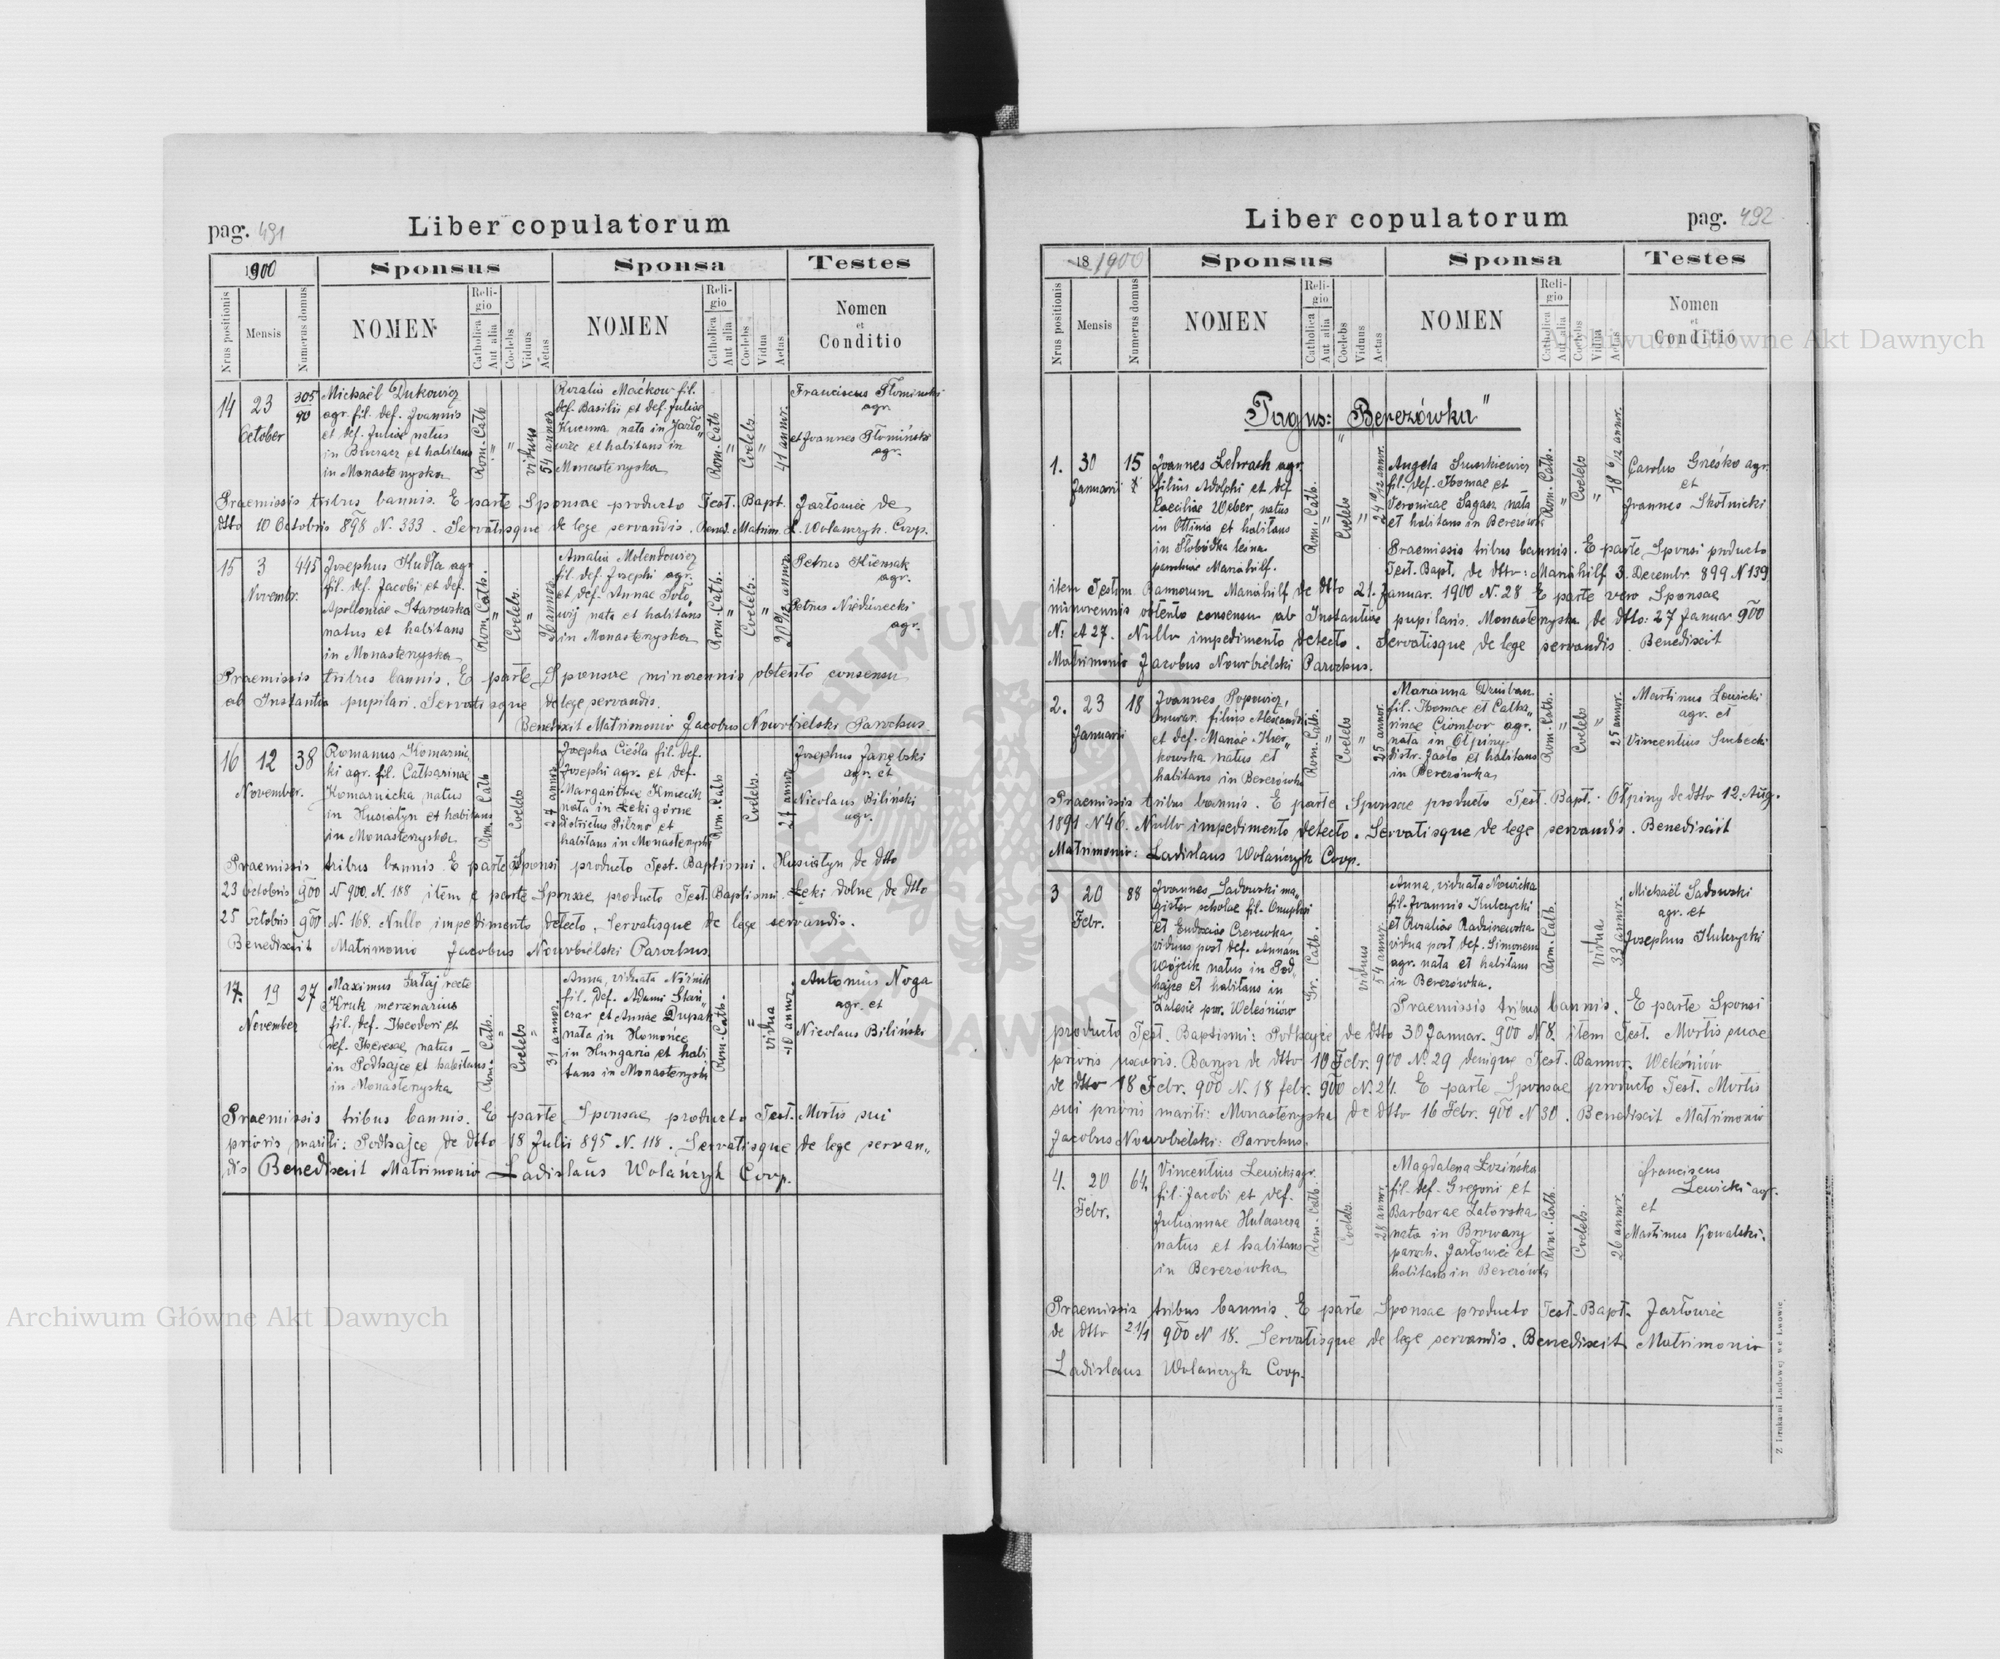 pag. 491
Liber copulatorum
1900
Sponsus
Sponsa
Testes
Nrus positionis
Mensis
Numerus domus
NOMEN
Reli-
gio
Catholica
Aut alia
Coelebs
Viduus
Aetas
NOMEN
Reli-
gio
Catholica
Aut alia
Coelebs
Vidua
Aetas
Nomen
et
Conditio
14
23
October
305
90
Michaël Dukowicz
agr. fil. def. Joannis
et def. Juliae natus
in et habitans
in Monasterzyska
Rom. Cath.
"
"
viduus
54 annor.
Rozalia Maćkow fil.
def. Basilii et def. Juliae
Kucerna nata in Jazło„
wiec et habitans in
Monasterzyska
Rom. Cath.
"
Coelebs
"
41 annor.
Franciscus Słominski
agr.
et Joannes Słomiński
agr.
Praemissis tribus bannis. E parte Sponsae producto Test. Bapt. Jazłowiec de
dtto 10 Octobris 898 N. 333. Servatisque de lege servandis. Bened. Matrim. L. Wolanczyk. Coop.
15
3
Novembr.
445
Josephus Kudła agr.
fil. def. Jacobi et def.
Apolloniae Starowska
natus et habitans
in Monasterzyska
Rom. Cath.
"
Coelebs.
"
26 annor.
Amalia Molendowicz
fil. def. Josephi agr.
et def. Annae Soło„
wij nata et habitans
in Monasterzyska
Rom. Cath.
"
Coelebs.
"
Petrus
agr.
Petrus
agr.
Praemissis tribus bannis. E parte Sponsae minorennis obtento consensu
ab Instantia pupilari. Servatisque de lege servandis.
Benedixit Matrimonio Jacobus Nowobielski Parochus.
16
12
November.
38
Romanus Komarnic„
ki agr. fil. Catharinae
Komarnicka natus
in Husiatyn et habitans
in Monasterzyska
Rom. Cath
Coelebs
Josepha Cieśla fil. def.
Josephi agr. et def.
Margarithae Kmiecik
nata in Łeki górne
districtus Pilzno et
habitans in Monasterzyski
Rom. Cath
Coelebs.
Josephus
agr. et
Nicolaus Biliński
agr.
Praemissis tribus bannis E parte Sponsi producto Test. Baptismi. Husiatyn de dtto
23 Octobris 900 N 900. N. 188 item e parte Sponsae producto Test. Baptismi. Łeki dolne de dtto
25 Octobris 900 N. 168. Nullo impedimento detecto. Servatisque de lege servandis.
Benedixit Matrimonio Jacobus Nowobielski Parochus.
17.
19
November
27
Maximus Fałaj recte
Kruk mercenarius
fil. def. Theodori et
def. Theresae natus
in Podhajce et habitans
in Monasterzyska
Rom. Cath.
"
Coelebs
"
31 annor.
Anna, viduata
fil. def. Adami
et Annae
nata in Homonce
in Hungaria et habi
tans in Monasterzyski
Rom. Cath.
"
vidua
40 annor.
Antonius Noga
agr. et
Nicolaus Biliński
Praemissis tribus bannis. E parte Sponsae producto Test. Mortis sui
prioris mariti: Podhajce de dtto 18 Julii 895 N. 118. Servatisque de lege servan„
dis Benedixit Matrimonio Ladislaus Wolańczyk Coop.
Liber copulatorum
pag. 492
18 1900
Sponsus
Sponsa
Testes
Nrus positionis
Mensis
Numerus domus
NOMEN
Reli-
gio
Catholica
Aut alia
Coelebs
Viduus
Aetas
NOMEN
Reli-
gio
Catholica
Aut alia
Coelebs
Vidua
Aetas
Nomen
et
Conditio
Pagus: "Berezówka"
1.
30
Januarii
15
Joannes Lehrach agr.
filius Adolphi et def.
Caeciliae Weber, natus
in Ottinia et habitans
in Słobódka leśna
parochiae Mariahilf.
Rom. Cath.
"
Coelebs
"
24 10/12 annor.
Angela Szuszkiewicz
fil. def. Thomae et
Veronicae Sagasz nata
et habitans in Berezówka
Rom. Cath.
"
Coelebs
"
18 6/12 annor.
Carolus Grześko agr.
et
Joannes Skotnicki
Praemissis tribus bannis. E parte Sponsi producto
Test. Bapt. de dtto: Mariahilf 3. Decembr. 899 N 139
item Testim. Bannorum Mariahilf de dtto 21. Januar. 1900 N. 28 E parte vero Sponsae
minorennis obtento consensu ab Instantiae pupilaris. Monasterzyska de dtto: 27 Januar 900
N: A 27. Nullo impedimento detecto. Servatisque de lege servandis. Benedixit
Matrimonio Jacobus Nowobielski Parochus.
2.
23
Januarii
18
Joannes Popowicz,
murar. filius Alexandri
et def. Mariae
kowska natus et
habitans in Berezówka
Coelebs
"
25 annor.
Marianna Dziuban
fil. Thomae et Catha„
rinae Ciombor agr.
nata in Ołpiny
distr. Jasło et habitans
in Berezówka
Rom. Cath.
"
Coelebs
"
25 annor.
Martinus Lewicki
agr. et
Vincentius Suchecki
Praemissis tribus bannis. E parte Sponsae producto Test. Bapt. Ołpiny de dtto 12. Aug.
1891 N 46. Nullo impedimento detecto. Servatisque de lege servandis. Benedixit
Matrimonio: Ladislaus Wolańczyk Coop.
3
20
Febr.
88
Joannes Sadowski ma„
gister scholae fil. Onuphri
et Eudoxiae Czerewka,
viduus post def. Annam
Wójcik natus in Pod„
hajce et habitans in
Zalesie par. Weleśniów
Gr. Cath.
viduus
54 annor.
Anna, viduata Nowicka
fil. Joannis Kulczycki
et Rozaliae Radziszewska
vidua post def. Simonem
agr. nata et habitans
in Berezówka.
Rom. Cath.
vidua
33 annor.
Michaël Sadowski
agr. et
Josephus Kulczycki
Praemissis tribus bannis. E parte Sponsi
producto Test. Baptismi: Podhajce de dtto 30 Januar. 900 N 8. item Test. Mortis suae
prioris uxoris. Barysz de dtto 10 Febr. 900 N. 29 denique Test. Bannor. Weleśniów
de dtto 18 Febr. 900 N. 18 febr. 900 N. 21. E parte Sponsae producto Test. Mortis
sui prioris mariti: Monasterzyska de dtto 16 Febr. 900 N 30. Benedixit Matrimonio
Jacobus Nowobielski: Parochus.
4.
20
Febr.
64.
Vincentius Lewicki agr.
fil. Jacobi et def.
Juliannae
natus et habitans
in Berezówka
Rom. Cath.
Coelebs.
28 annor.
Magdalena Łozińska
fil. def. Gregorii et
Barbarae Zatorska
nata in Browary
paroch. Jazłowiec et
habitans in Berezówka
Rom. Cath.
Coelebs.
26 annor.
Franciscus
Lewicki agr.
et
Martinus Kowalski.
Praemissis tribus bannis. E parte Sponsae producto Test. Bapt. Jazłowiec
de dtto 21/1 900 N 18. Servatisque de lege servandis. Benedixit Matrimonio
Ladislaus Wolańczyk Coop.
Z Drukarni Ludowej we Lwowie.
Archiwum Główne Akt Dawnych
Archiwum Główne Akt Dawnych